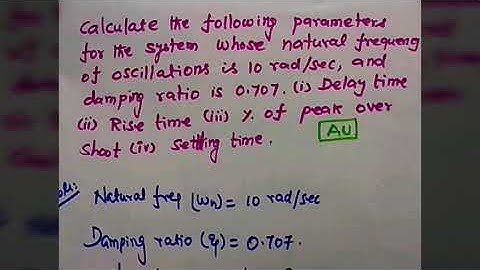 Calculate the following parameters
for the system whose natural frequency
of oscillations is 10 rad/sec, and
damping ratio is 0.707. (i) Delay time
(ii) Rise time (iii) % of peak over
shoot (iv) settling time. AU
Soln: Natural freq (ωn) = 10 rad/sec
Damping ratio (ξ) = 0.707.